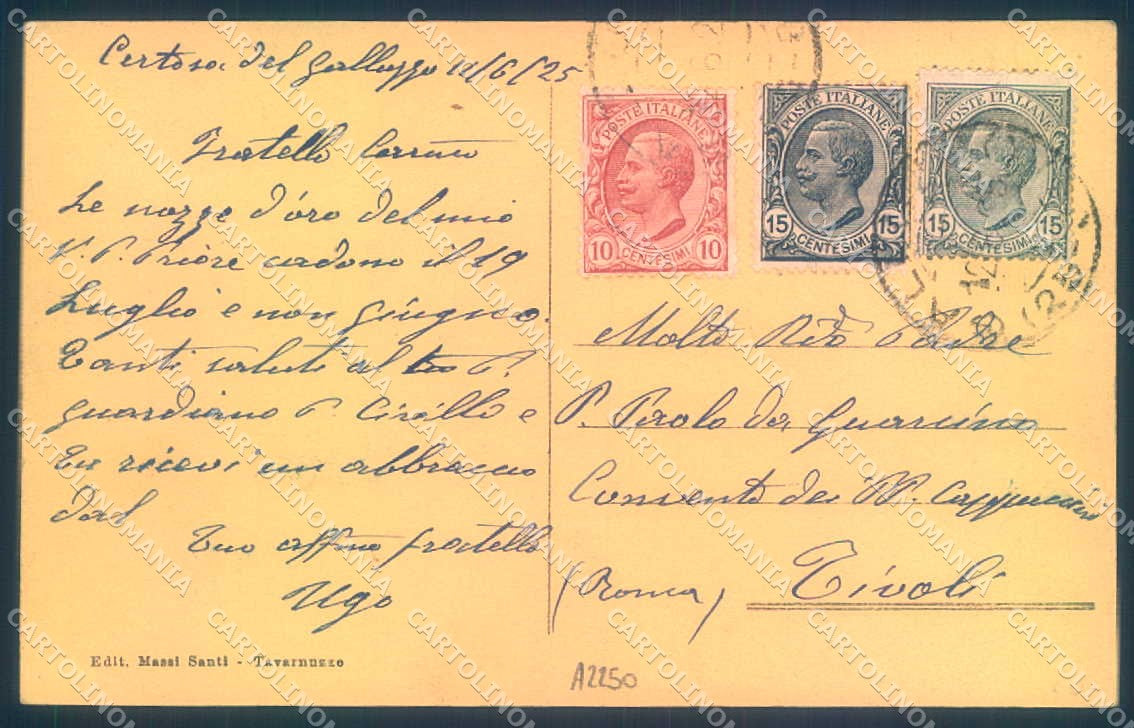 Certosa del Galluzzo 12/6/25
Fratello Carmo
Le nozze d'oro del mio
V. P. Priore cadono il 19
Luglio e non giugno.
Tanti saluti al P.
guardiano P. Cirillo e
tu ricevi un abbraccio
dal
tuo affmo fratello
Ugo
Edit. Massi Santi - Tavarnuzze
POSTE ITALIANE
10 CENTESIMI 10
POSTE ITALIANE
15 CENTESIMI 15
POSTE ITALIANE
15 CENTESIMI 15
Molto Rdo Padre
P. Paolo da Guarcino
Convento dei PP. Cappuccini
Tivoli
(Roma)
A2250
CARTOLINOMANIA